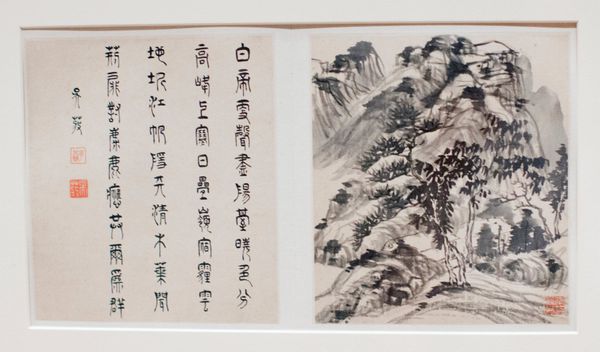 白帝更聲盡陽臺曉色分
高峰上寒日疊嶺宿霾雲
地坼江帆隱天清木葉聞
荊扉對麋鹿應共爾為群
吳